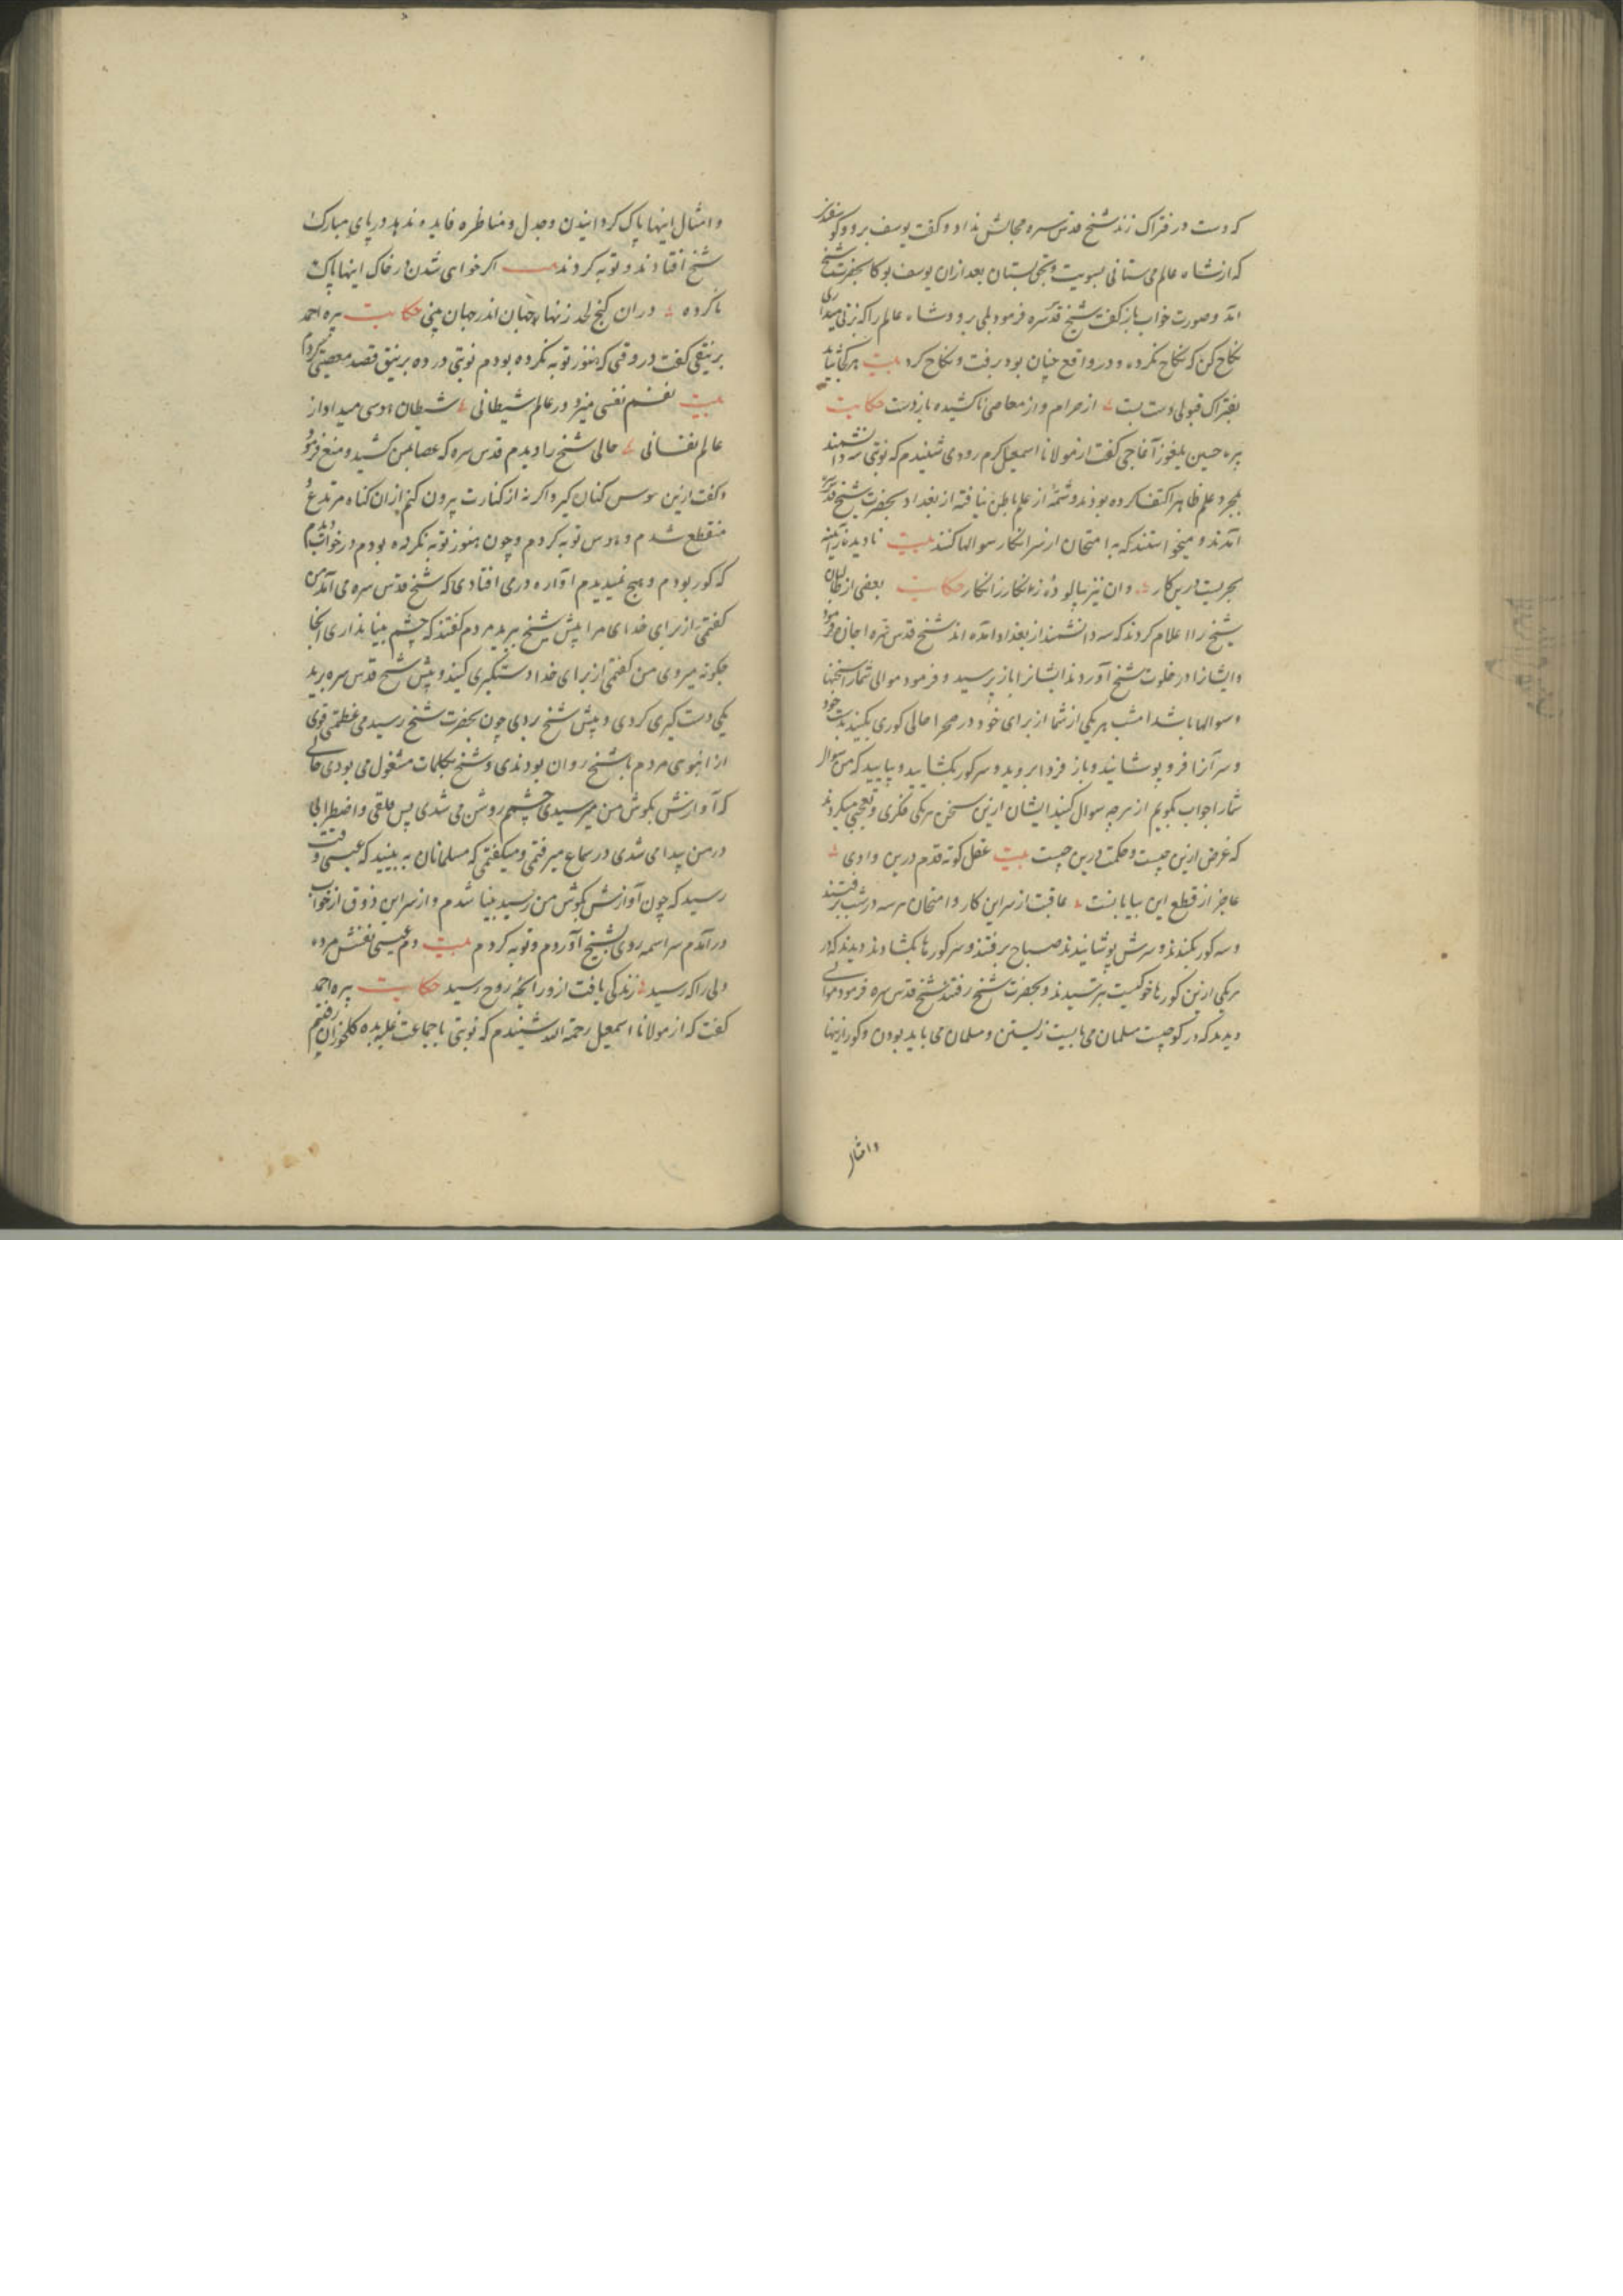 که دست در فتراک زند شیخ قدس سره مجالش نداد و گفت یوسف برو و کو
که از شاه عالم می ستانی بسویت و بحق بستان بعد از ان یوسف بوکا بحضرت شیخ
آمد و صورت خواب باز گفت شیخ قدس سره فرمود بلی برو و شاه عالم را که بزنی میداری
نکاح کن که نکاح نکرده و در واقع چنان بود برفت و نکاح کرد بیت هر کجا نیاید
بفتراک قبولی دست بست از حرام و از معاصی نا کشیده باز دست حکایت
پیره حسین یلغوز آغاجی گفت از مولانا اسمعیل کرم رودی شنیدم که نوبتی سه دانشمند
بمجرد علم ظاهر اکتفا کرده بودند و شمهٔ از علم باطن نیافته از بغداد بحضرت شیخ قدس سره
آمدند و میخواستند که به امتحان از سر انکار سوالها کنند بیت نادیده ز آینه
بحریست درین کار وان نیز بپالوده ز انکار ز انکار حکایت بعضی از طالبان
شیخ را اعلام کردند که سه دانشمند از بغداد آمده اند شیخ قدس سره اجازه فرمود
و ایشانرا در خلوت شیخ آوردند ایشانرا باز پرسید و فرمود موالی شمارا سخنها
و سوالها باشد امشب هر یکی از شما از برای خود در صحرا حالی کوری بکنید بدست خود
و سر آنرا فرو پوشانید و باز فردا بروید و سر کور بکشایید و بیایید که من سوال
شمارا جواب بکویم از هرچه سوال کنید ایشان ازین سخن هر یکی فکری و تعجبی میکردند
که غرض ازین چیست و حکمت درین چیست بیت عقل کوته قدم درین وادی
عاجز از قطع این بیابانست عاقبت از سر این کار و امتحان هر سه در شب برفتند
و سه کور بکندند و سرش پوشانیدند صباح برفتند و سر کورها بکشادند دیدند که در
هر یکی ازین کورها خوکیست بترسیدند و بحضرت شیخ رفتند شیخ قدس سره فرمود موالی
دیدید که در کور چیست مسلمان می بایست زیستن و مسلمان می باید بودن و کور ازینها
وامثال
و امثال اینها پاک کردانیدن و جدل و مناظره فایده ندهد در پای مبارک
شیخ افتادند و توبه کردند بیت اکر خواهی شدن در خاک اینها پاک
نا کرده در ان کنج لحد زنها جهان اندر جهان بینی حکایت پیره احمد
برنیقی گفت در وقتی که هنوز توبه نکرده بودم نوبتی در ده برنیق قصد معصیتی کردم
بیت نفسم نفسی میزد در عالم شیطانی شیطان هوسی میداد از
عالم نفسانی حالی شیخ را دیدم قدس سره که عصا بمن کشید و منع فرمود
و گفت ازین هوس کنار کیر و اکر نه از کنارت بیرون کنم از ان کناه مرتدع و
منقطع شدم و هوس توبه کردم و چون هنوز توبه نکرده بودم در خواب دیدم
که کور بودم و هیچ نمیدیدم آوازه در می افتادی که شیخ قدس سره می آید من
گفتمی از برای خدای مرا پیش شیخ برید مردم گفتند که چشم بینا نداری آنجا
چکونه میروی من گفتمی از برای خدا دستکیری کنید و پیش شیخ قدس سره برید
یکی دست کیری کردی و پیش شیخ بردی چون بحضرت شیخ رسیدمی عظمتی قوی
از انبوهی مردم با شیخ روان بودندی و شیخ بکلمات مشغول می بودی حالی
که آوازش بکوش من میرسیدی چشمم روشن می شدی پس قلقی و اضطرابی
در من پیدا می شدی در سماع میرفتمی و میکفتمی که مسلمانان به بینید که عیسی وقت
رسید که چون آوازش بکوش من رسید بینا شدم و از سر این ذوق از خواب
در آمدم سراسمه روی بشیخ آوردم و توبه کردم بیت دم عیسی نفسش مرده
دلی را که رسید زندکی یافت ازو رایحهٔ روح رسید حکایت پیره احمد
گفت که از مولانا اسمعیل رحمة الله شنیدم که نوبتی با جماعت غلبه بده کلخوران رفتیم